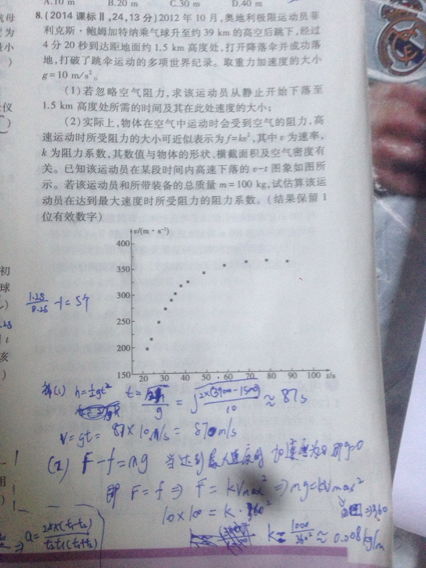 A.10 m B.20 m C.30 m D.40 m
8.(2014课标Ⅱ,24,13分)2012年10月,奥地利极限运动员菲
利克斯·鲍姆加特纳乘气球升至约39 km的高空后跳下,经过
4分20秒到达距地面约1.5 km高度处,打开降落伞并成功落
地,打破了跳伞运动的多项世界纪录。取重力加速度的大小
g=10 m/s²。
(1)若忽略空气阻力,求该运动员从静止开始下落至
1.5 km高度处所需的时间及其在此处速度的大小;
(2)实际上,物体在空气中运动时会受到空气的阻力,高
速运动时所受阻力的大小可近似表示为f=kv²,其中v为速率,
k为阻力系数,其数值与物体的形状、横截面积及空气密度有
关。已知该运动员在某段时间内高速下落的v-t图象如图所
示。若该运动员和所带装备的总质量m=100 kg,试估算该运
动员在达到最大速度时所受阻力的阻力系数。(结果保留1
位有效数字)
v/(m·s⁻¹)
400
350
300
250
200
150
20 30 40 50 60 70 80 90 100 t/s
解(1) h=½gt²
≈87s
V=gt= 87×10m/s= 870m/s
(2) F-f=mg
即 F=f⇒ F=kVmax² ⇒mg=kVmax²
10×100=k·360²
≈0.008kg/m